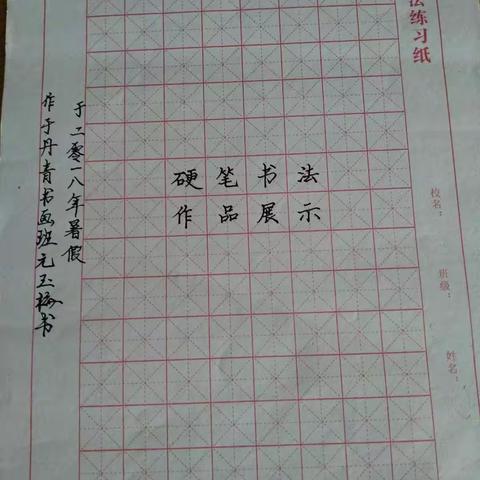 法练习纸
校名：
班级：
姓名：
硬笔书法
作品展示
于二零一八年暑假
作于丹青书画班元玉梅书